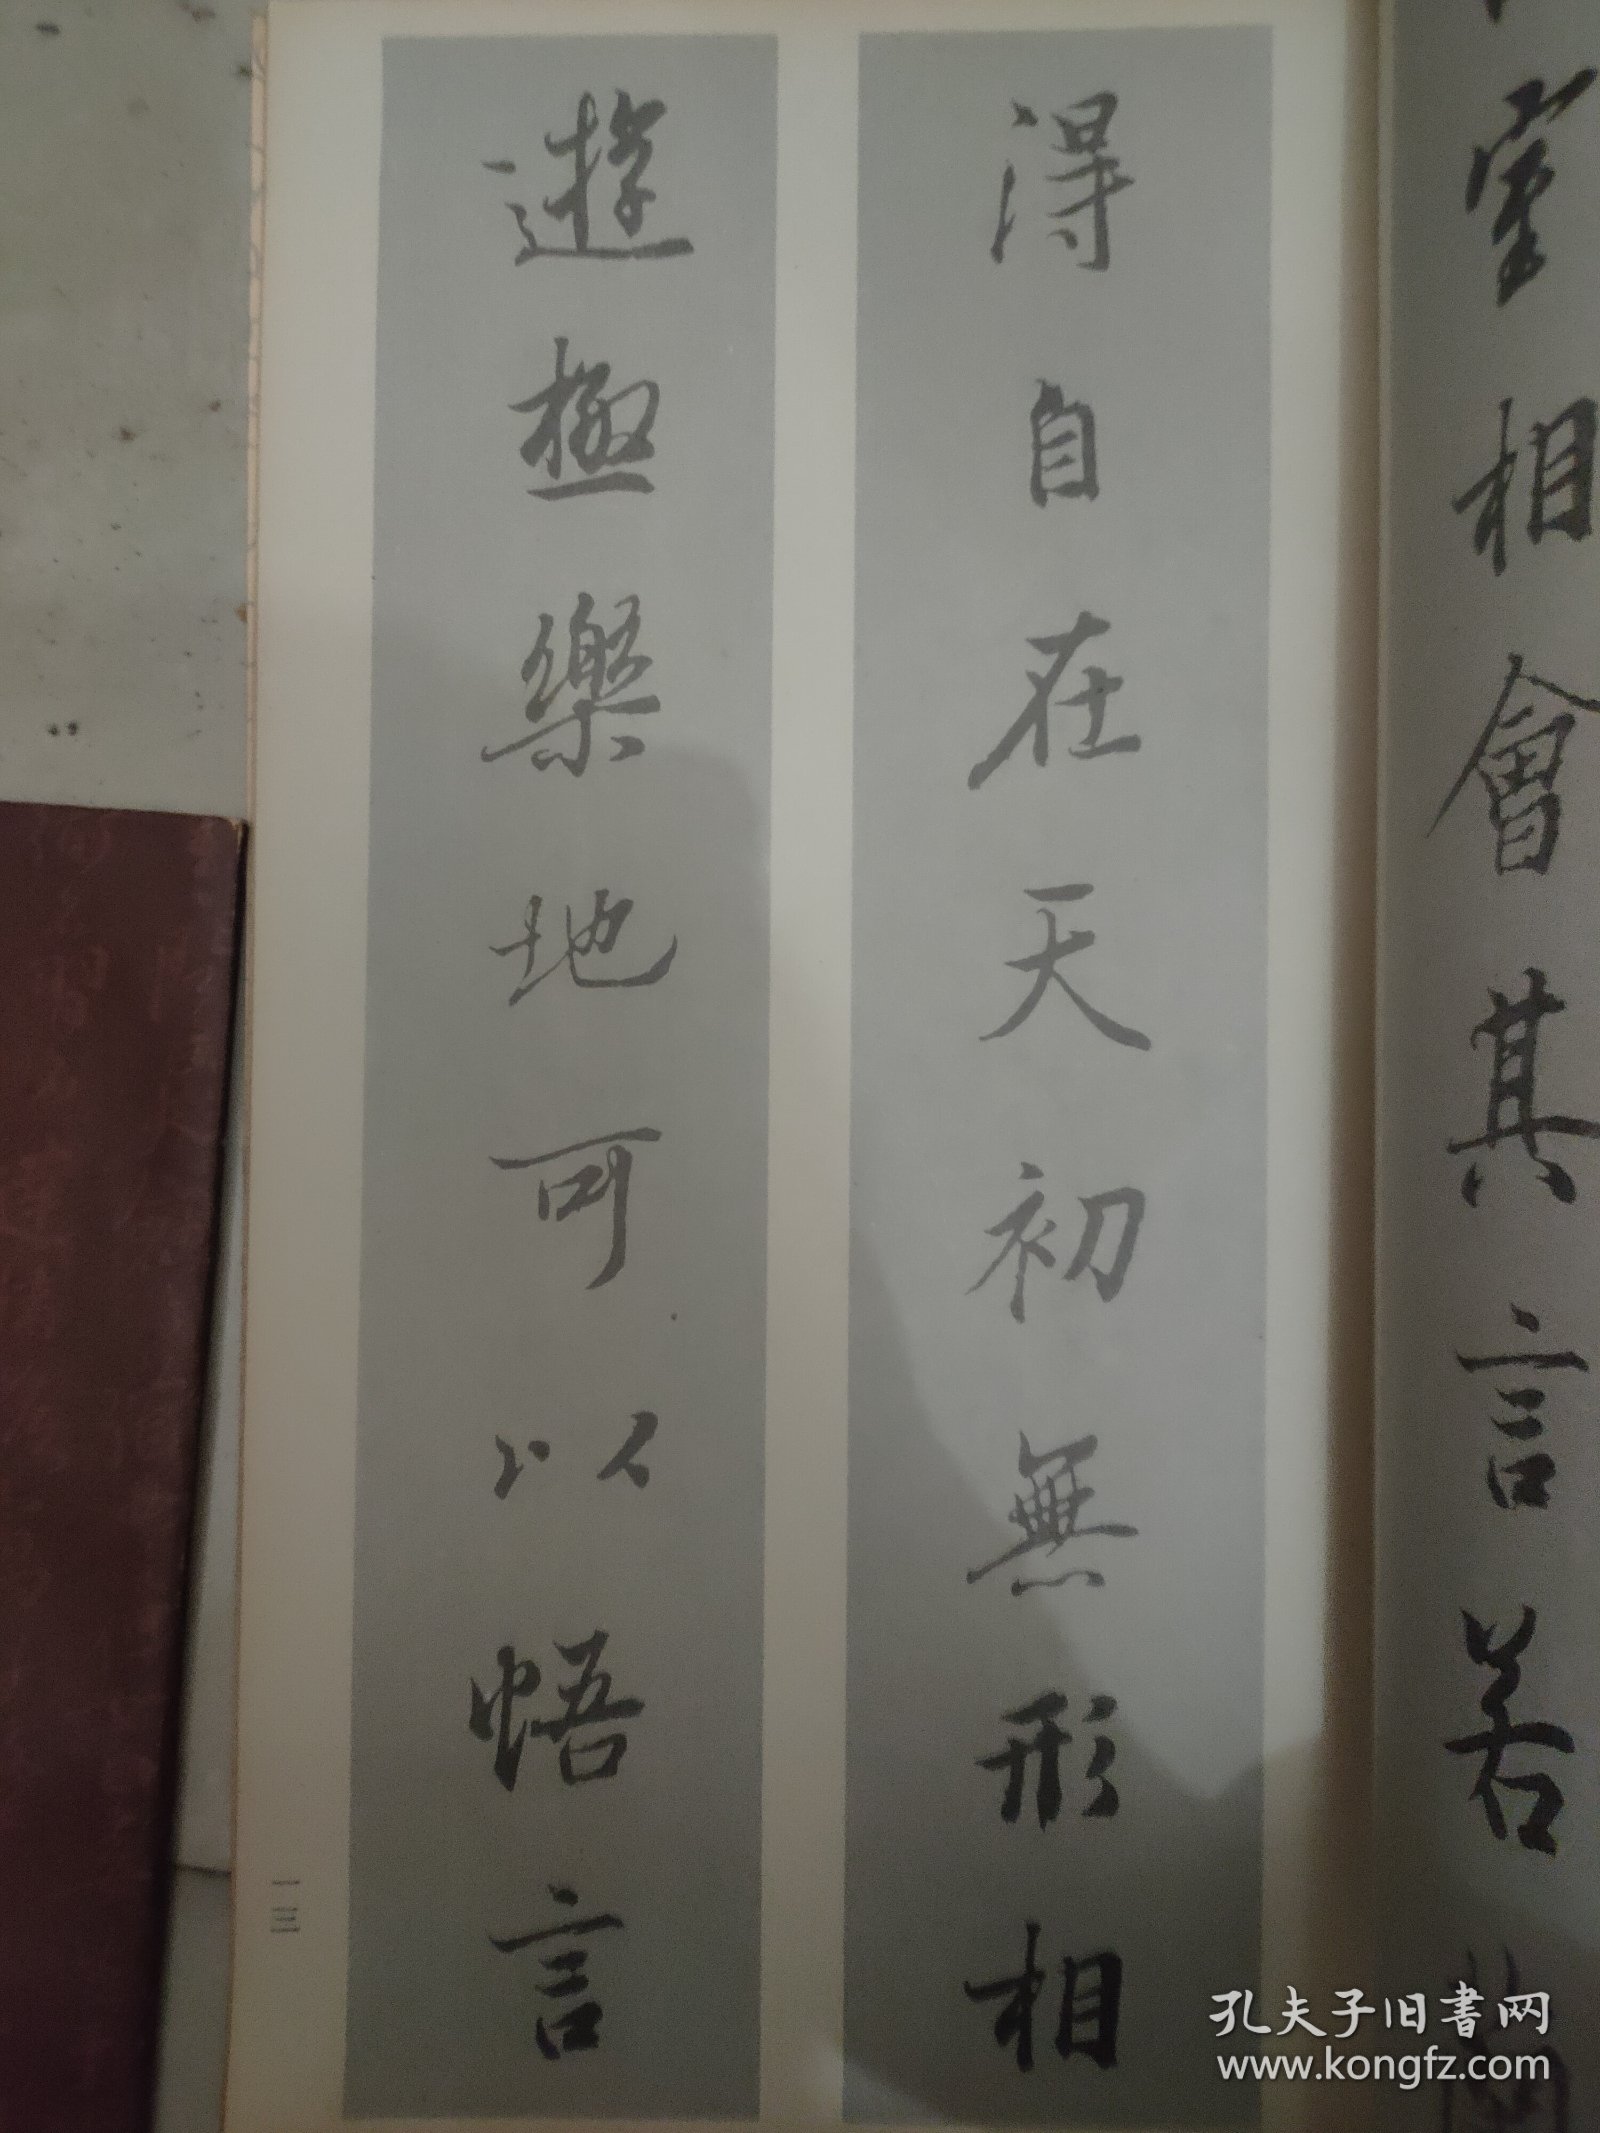 相會其言若蘭
得自在天初無形相
遊極樂地可以悟言
一三
孔夫子旧書网
www.kongfz.com